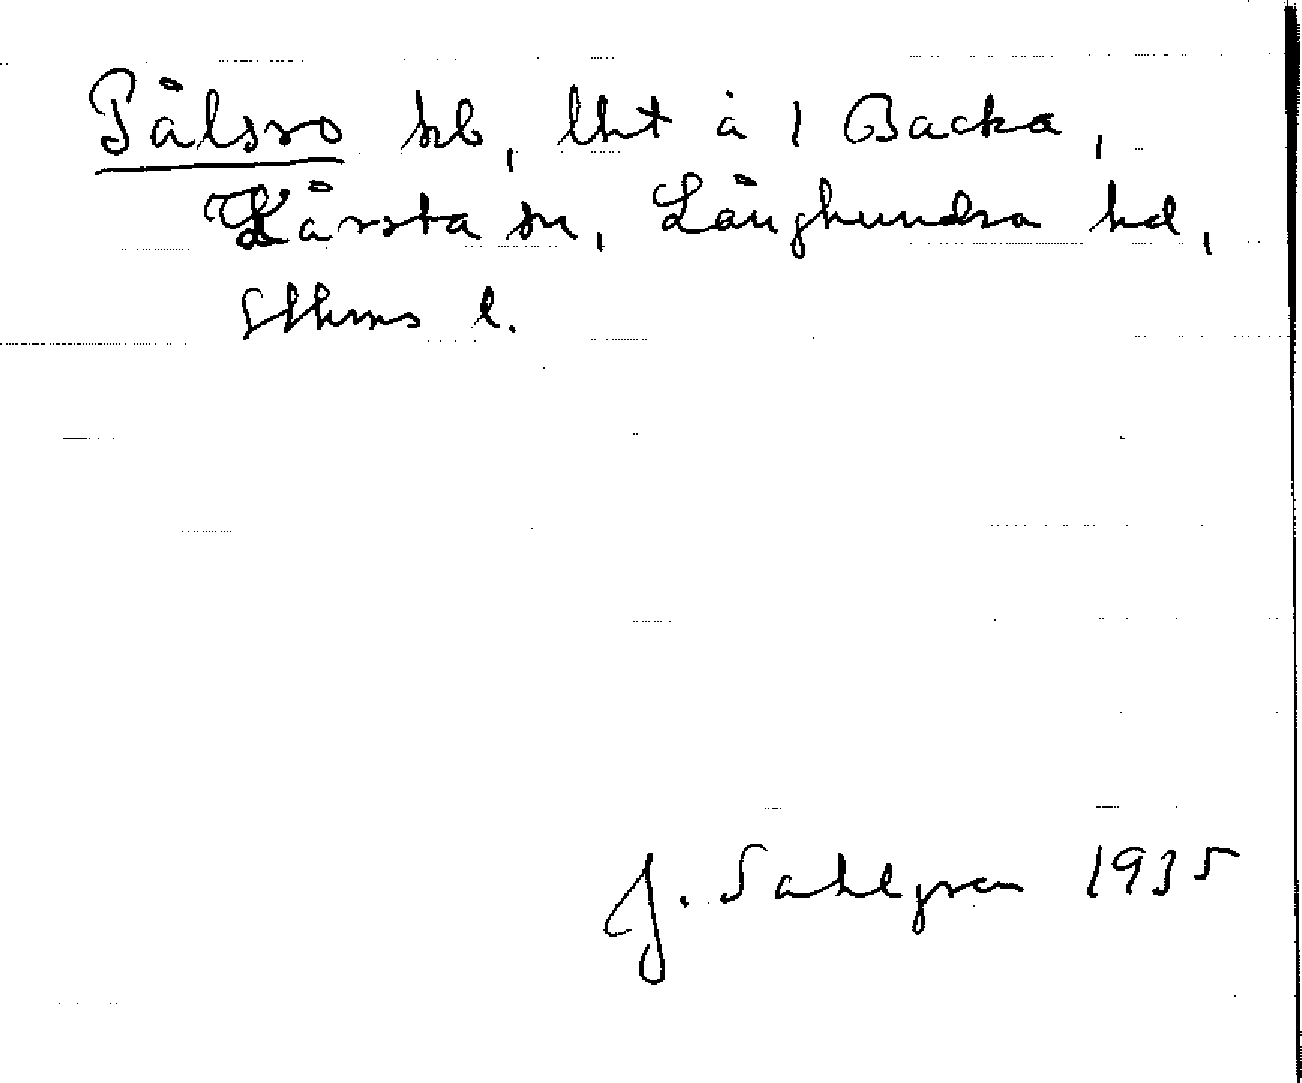 Pålsro skb, lht å 1 Backa,
Kårsta sn, Långhundra hd,
Sthms l.
J. Sahlgren 1935